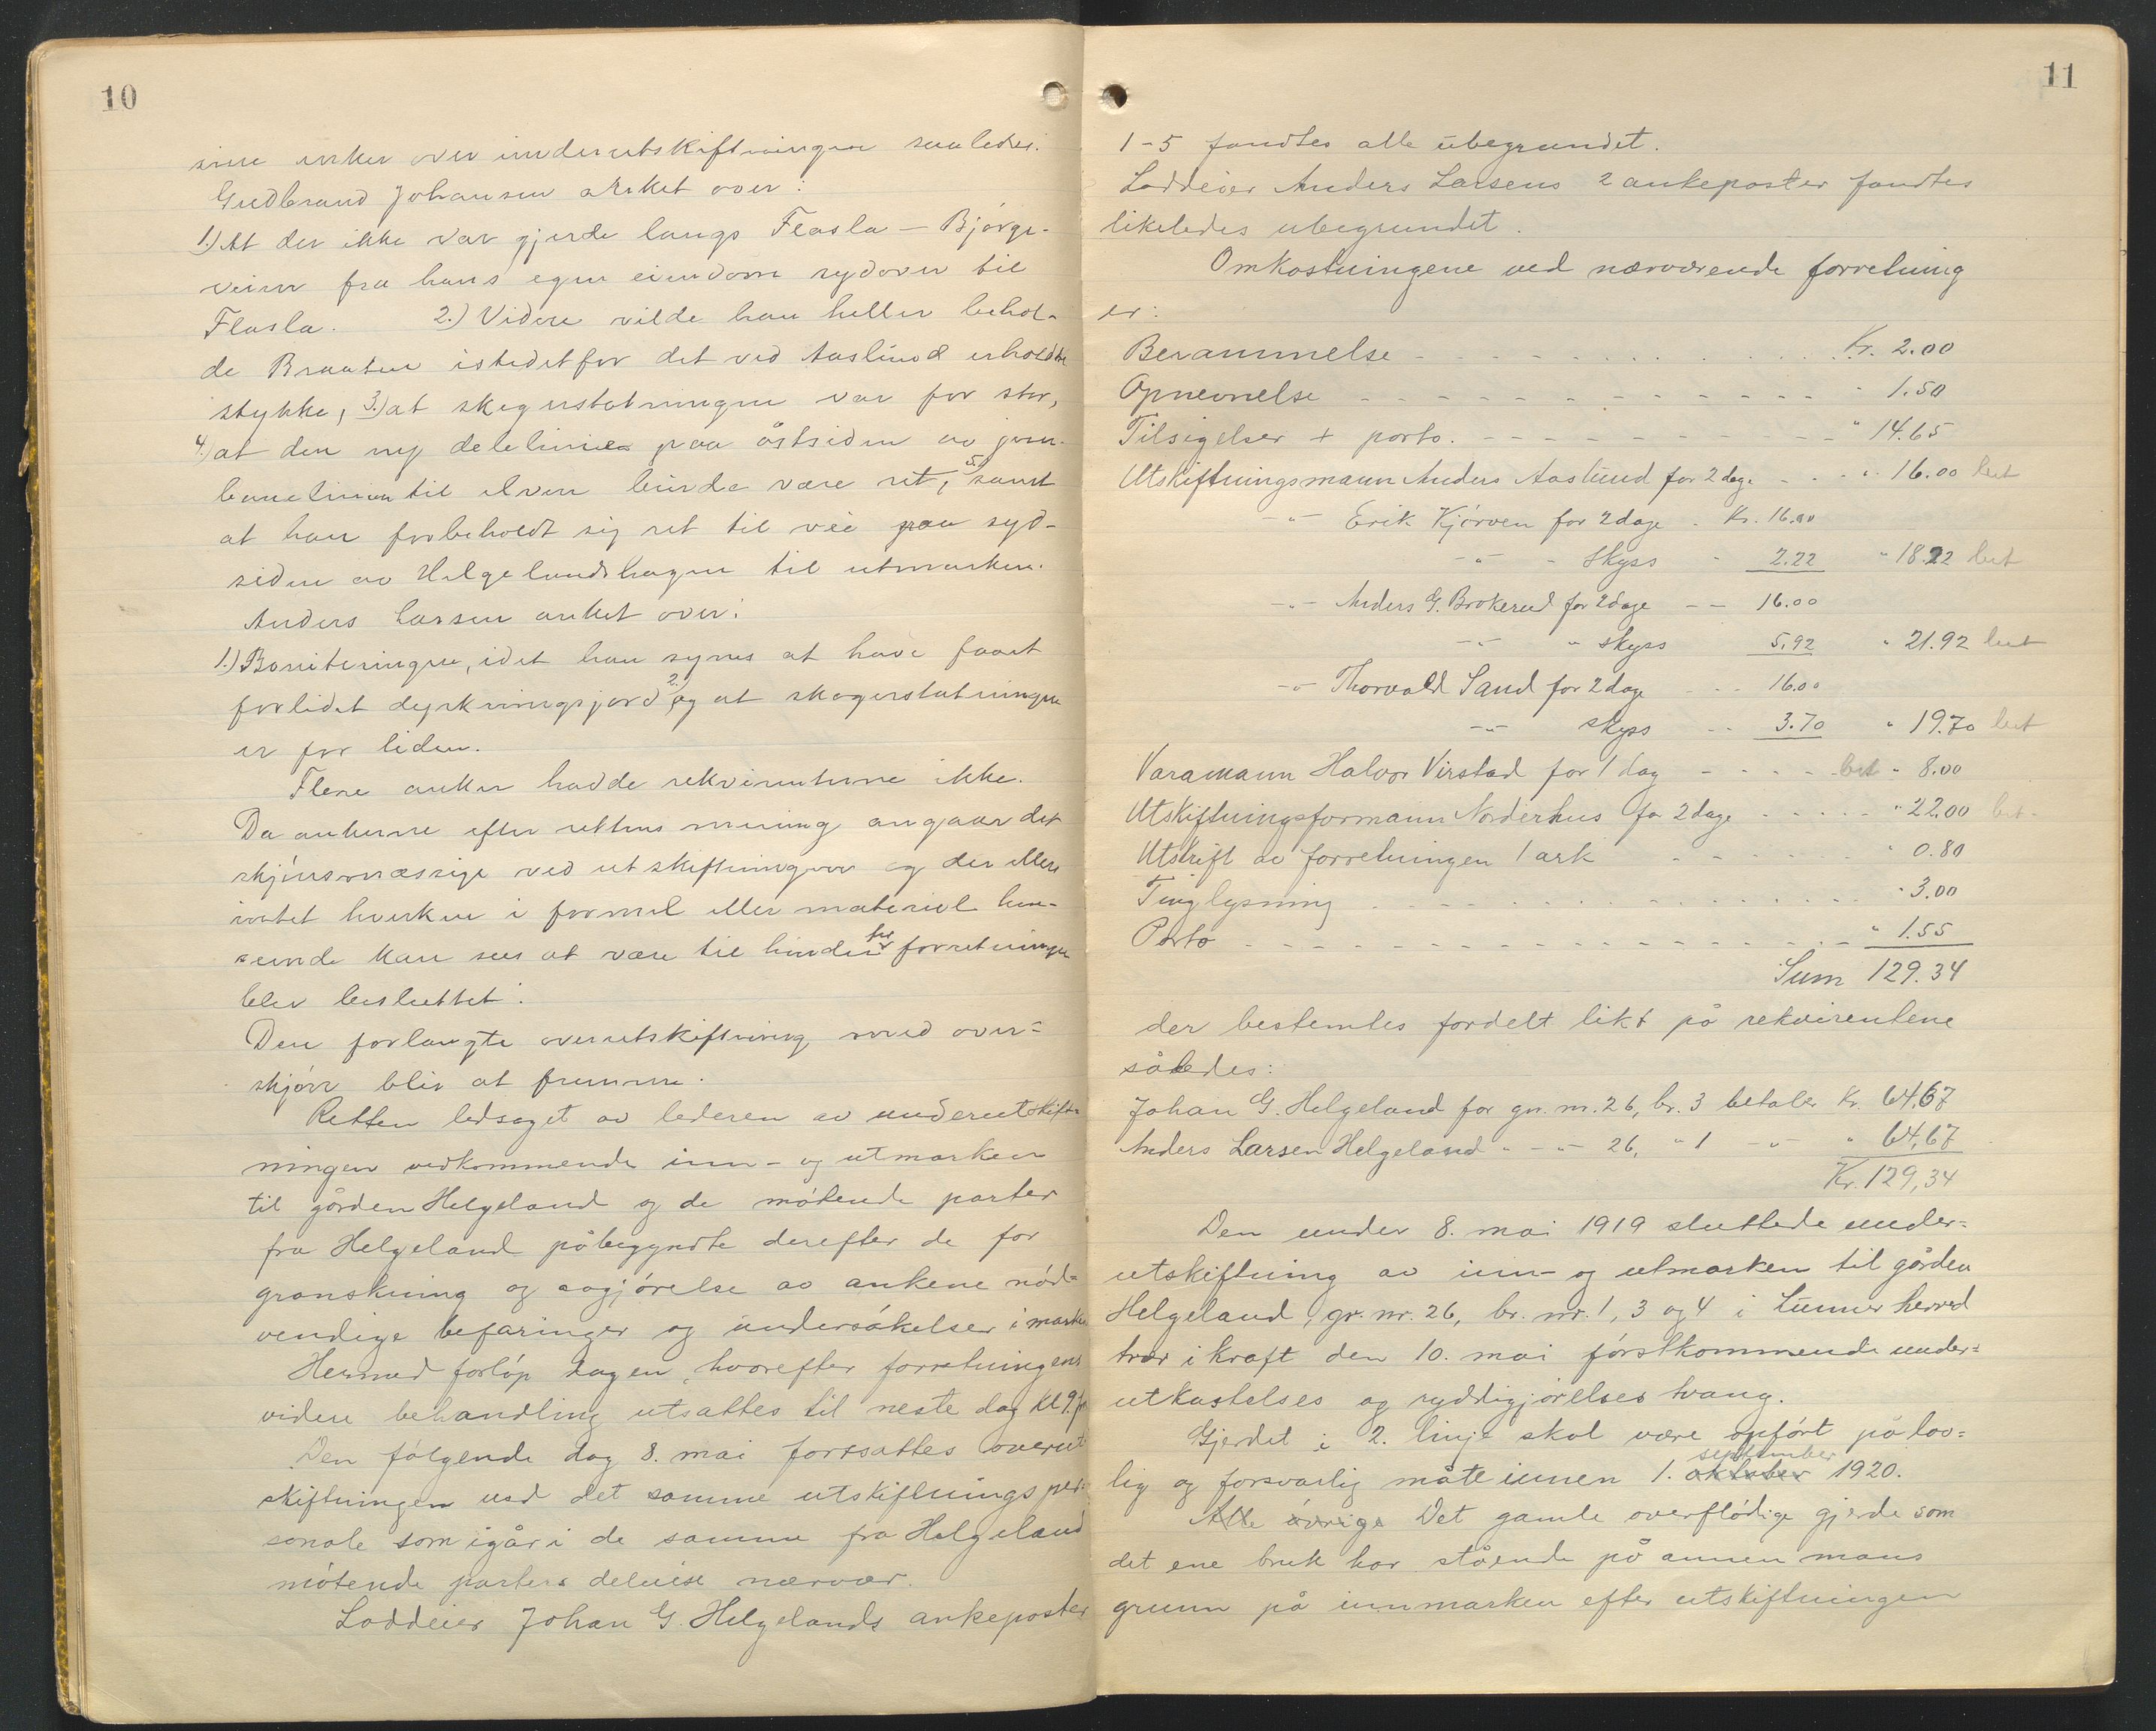 10
sine anker over underutskiftningen saaledes:
Gudbrand Johansen anket over:
1.) At der ikke var gjerde langs Flasla – Bjørge-
veien fra hans egen eiendom sydover til
Flasla. 2.) Videre vilde han heller behol-
de Braaten istedetfor det ved Aaslund erholdte
stykke, 3.) at skogerstatningen var for stor,
4.) at den ny delelinie paa østsiden av jern-
banelinien til elven burde være ret, 5.) samt
at han forbeholdt sig ret til vei paa syd-
siden av Helgelandshagen til utmarken.
Anders Larsen anket over:
1.) Boniteringen, idet han synes at have faaet
forlidet dyrkningsjord 2.) og at skogerstatningen
er for liden.
Flere anker hadde rekvirenterne ikke.
Da ankerne efter rettens mening angaar det
skjønsmæssige ved utskiftningen og der ellers
intet hverken i formel eller materiel hen-
seende kan sees at være til hinder for forretningen
blev besluttet:
Den forlangte overutskiftning med over-
skjøn blir at fremme.
Retten ledsaget av lederen av underutskift-
ningen vedkommende inn- og utmarken
til gården Helgeland og de møtende parter
fra Helgeland påbegyndte derefter de for
granskning og avgjørelse av ankene nød-
vendige befaringer og undersøkelser i marken
Hermed forløp dagen, hvorefter forretningens
videre behandling utsattes til neste dag kl 9. fm
Den følgende dag 8. mai fortsattes overut-
skiftningen ved det samme utskiftningsper-
sonale som igår i de samme fra Helgeland
møtende parters delvise nærvær.
Loddeier Johan G. Helgelands ankeposter
11
1-5 fandtes alle ubegrundet.
Loddeier Anders Larsens 2 ankeposter fandtes
likeledes ubegrundet.
Omkostningene ved nærværende forretning
er:
Berammelse - - - - Kr. 2.00
Opnevnelse - - - - " 1.50
Tilsigelser + porto. - - - - " 14.65
Utskiftningsmann Anders Aaslund for 2 dage - - - " 16.00 bet
-"- Erik Kjørven for 2 dage - Kr. 16.00
-"- - Skyss - 2.22 " 18.22 bet
-"- Anders G. Brokerud for 2 dage - - 16.00
-"- " skyss 5,92 " 21.92 bet
-"- Thorvald Sand for 2 dage - - 16.00
-"- skyss - - 3.70 " 19.70 bet
Varamann Halvor Virstad for 1 dag - - - - bet " 8.00
Utskiftningsformann Norderhus for 2 dage - - - - " 22.00 bet.
Utskrift av forretningen 1 ark - - - - " 0.80
Tinglysning - - - - " 3.00
Porto - - - - " 1.55
Sum 129.34
der bestemtes fordelt likt på rekvirentene
således:
Johan G. Helgeland for gn. nr. 26, br. 3 betaler Kr. 64,67
Anders Larsen Helgeland " -"- 26, " 1 -"- " 64,67
Kr. 129,34
Den under 8. mai 1919 sluttede under-
utskiftning av inn- og utmarken til gården
Helgeland, gr. nr. 26, br. nr. 1, 3 og 4 i Lunner herred
trær i kraft den 10. mai førstkommende under-
utkastelses og ryddiggjørelses tvang.
Gjerdet i 2. linje skal være opført på lov-
lig og forsvarlig måte innen 1. oktober september 1920.
Alle øvrige Det gamle overflødige gjerde som
det ene bruk har stående på annen mans
grunn på innmarken efter utskiftningen